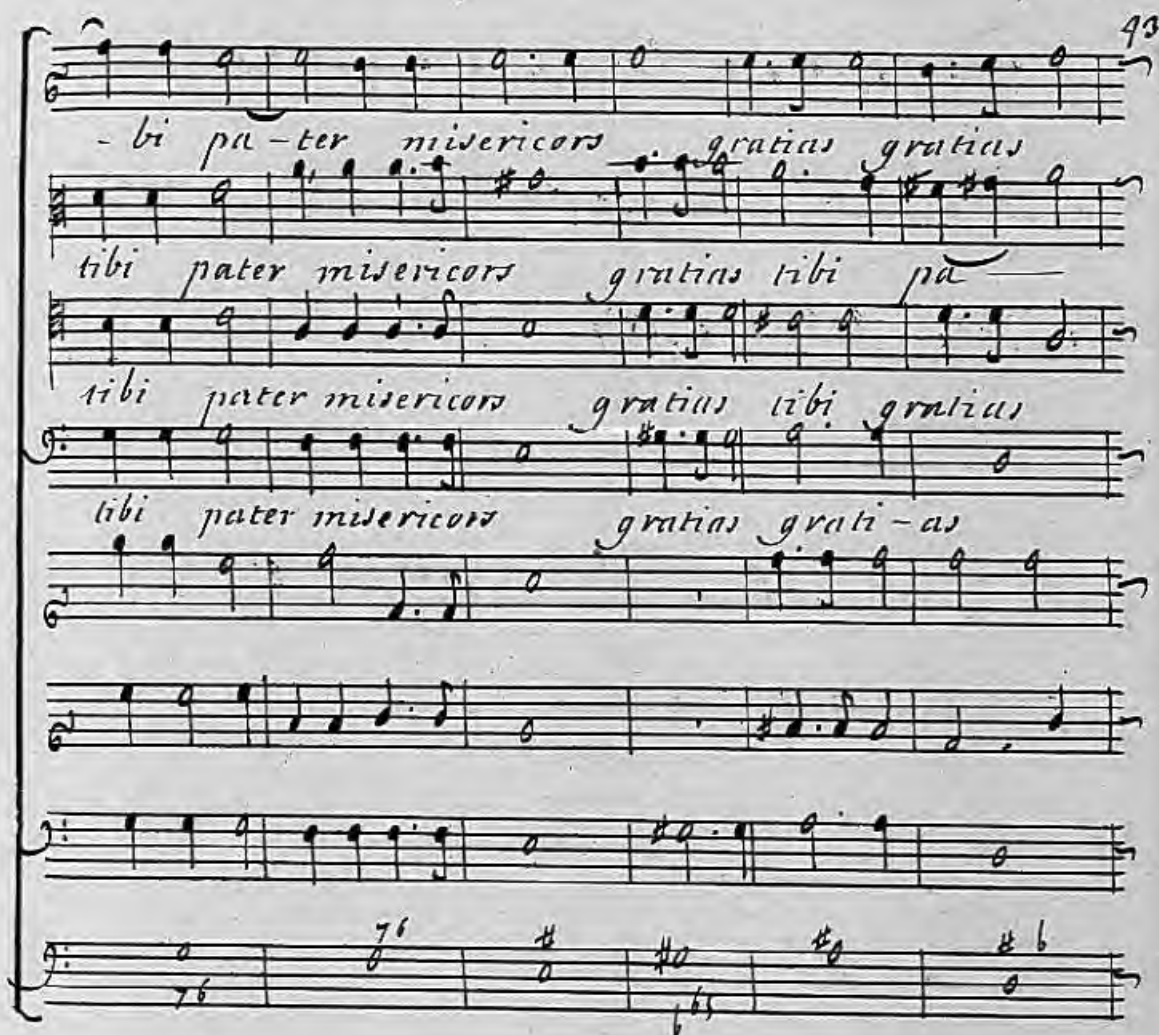 93
- bi pa-ter misericors gratias gratias
tibi pater misericors gratias tibi pa —
tibi pater misericors gratias tibi gratias
tibi pater misericors gratias grati-as
76 # # b
76 b 65